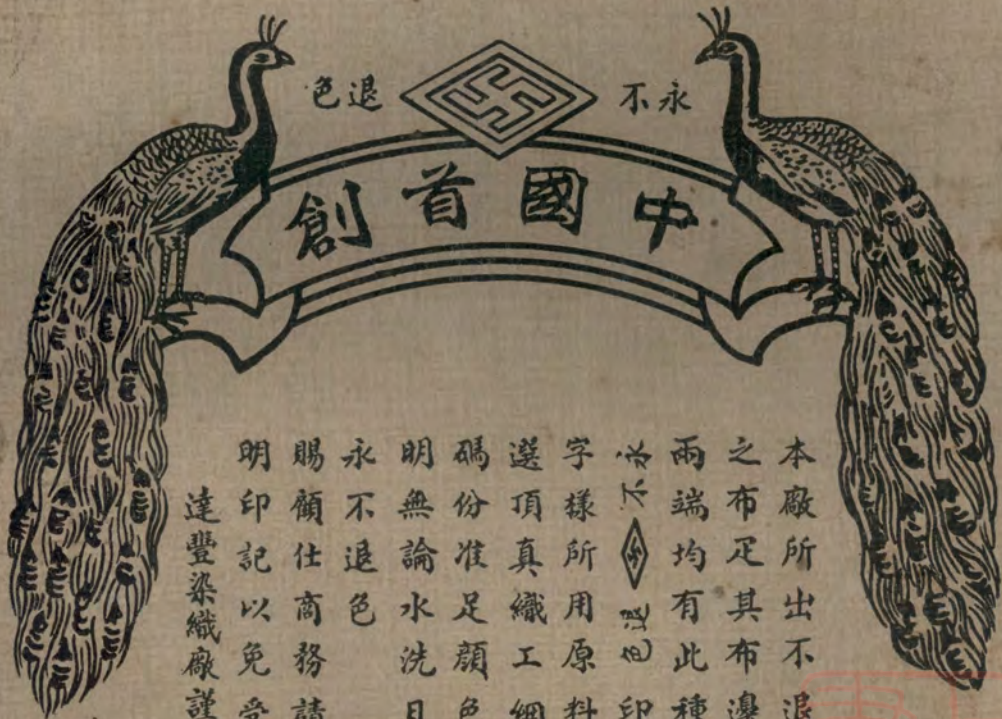 永不退色
中國首創
本廠所出不退
之布疋其布邊
兩端均有此種
永不退色印
字樣所用原料
選頂真織工細
碼份准足顏色
明無論水洗日
永不退色
賜顧仕商務請
明印記以免受
達豐染織廠謹